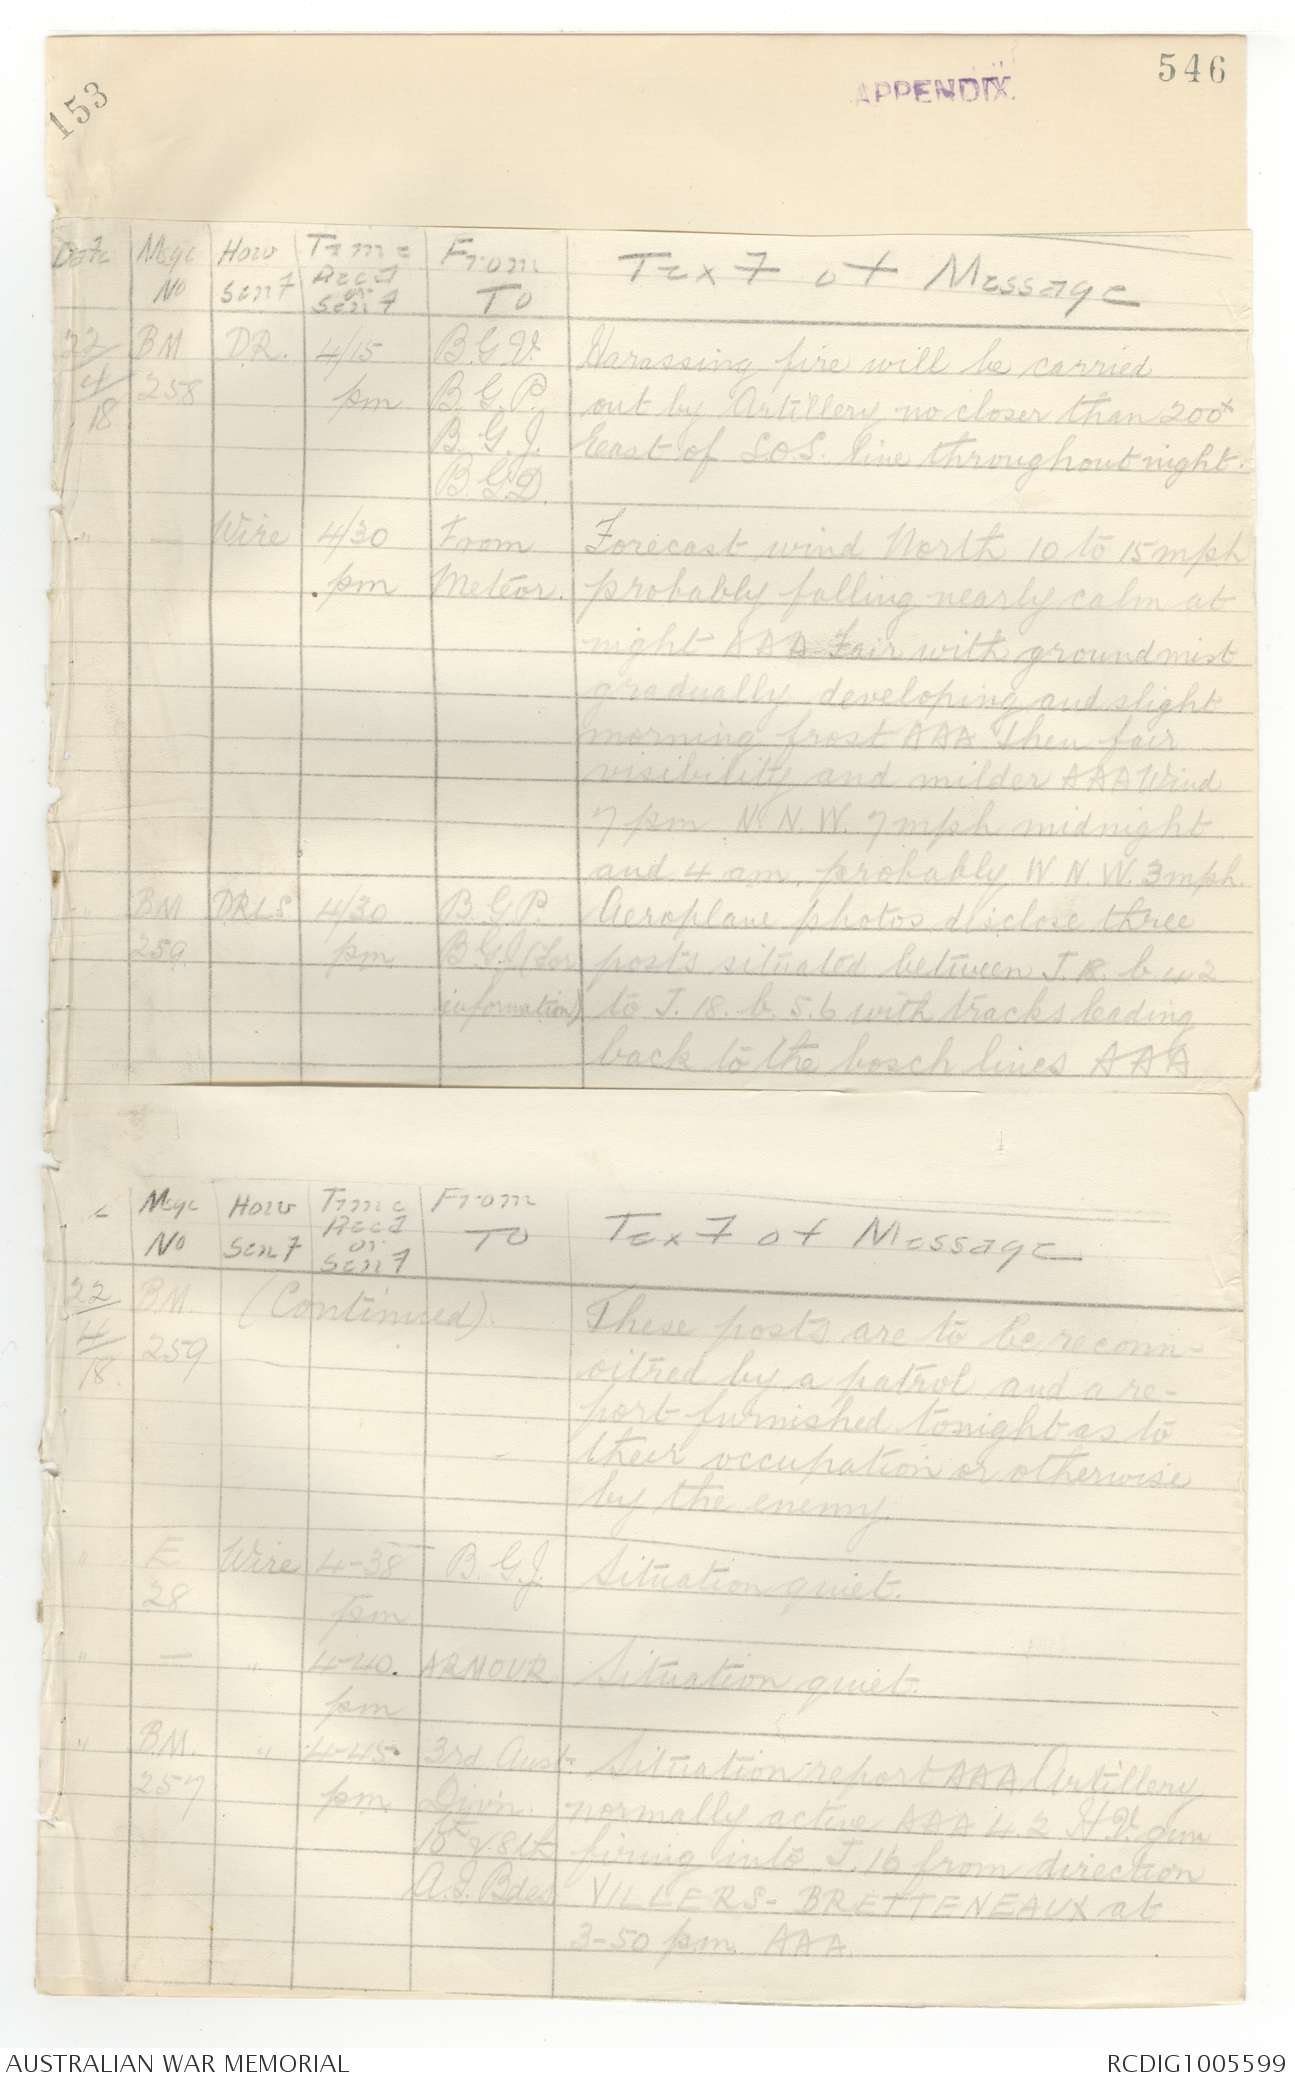 546
APPENDIX.
153
Date Msge No How Sent Time Recd or Sent From To Text of Message
22/4/18 BM 258 DR. 4/15 pm B.G.V. B.G.P. B.G.J. B.G.D.
Harassing fire will be carried
out by Artillery no closer than 200x
East of S.O.S. line throughout night.
" — Wire 4/30 pm From Meteor.
Forecast wind North 10 to 15 mph
probably falling nearly calm at
night AAA Fair with ground mist
gradually developing and slight
morning frost AAA Then fair
visibility and milder AAA Wind
7 pm N.N.W. 7 mph midnight
and 4 am. probably W.N.W. 3 mph.
" BM 259 DRLS 4/30 pm B.G.P. B.G.J (For information)
Aeroplane photos disclose three
posts situated between J.18.b.4.2
to J.18.b.5.6 with tracks leading
back to the bosch lines AAA
Msge No How Sent Time Recd or Sent From To Text of Message
22/4/18. BM. 259 (Continued).
These posts are to be reconn-
oitred by a patrol and a re-
port furnished tonight as to
their occupation or otherwise
by the enemy.
" E 28 Wire 4-38 pm B.G.J. Situation quiet.
" — " 4-40. pm ARMOUR Situation quiet.
" B.M. 257 " 4-45. pm 3rd Aust. Divn. 15th & 8th A.I. Bdes
Situation report AAA Artillery
normally active AAA 4.2 H.V. gun
firing into J.16 from direction
VILLERS-BRETTENEAUX at
3-50 pm AAA.
AUSTRALIAN WAR MEMORIAL
RCDIG1005599